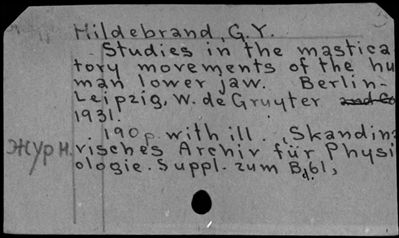 Hildebrand, G.Y.
Studies in the mastica
tory movements of the hu
man lower jaw. Berlin-
Leipzig, W. de Gruyter and Co
1931.
190p. with ill. (Skandina
Журн. visches Archiv für Physi
ologie. Suppl. zum Bd 61)